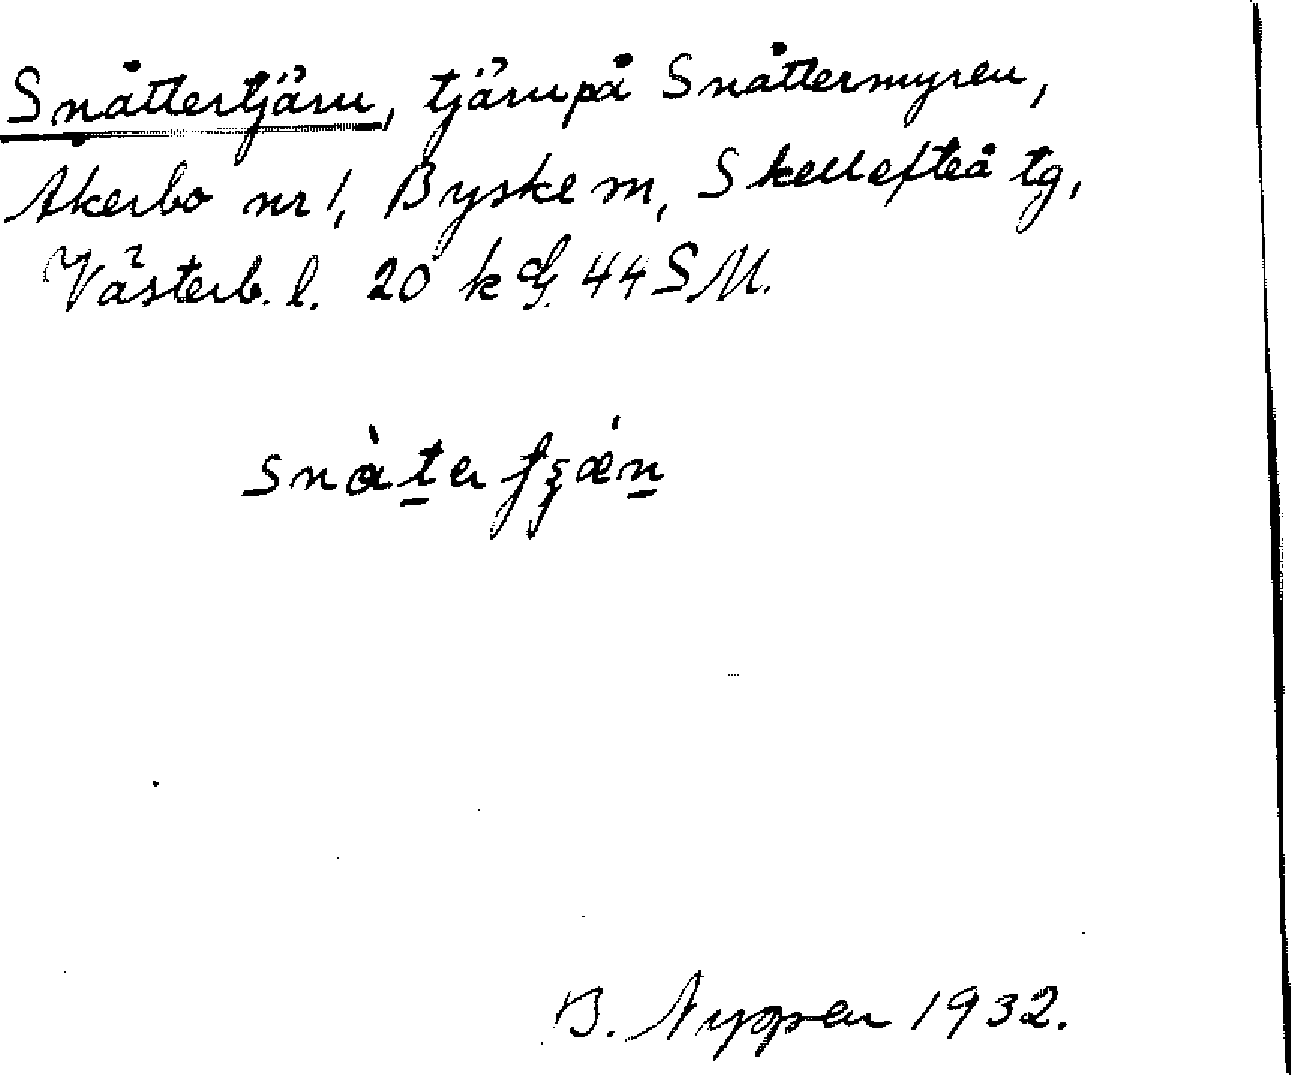 Snåttertjärn, tjärn på Snåttermyren,
Åkerbo nr 1, Byske sn, Skellefteå tg,
Västerb. l. 20 k G. 44 SM.
B. Nyppen 1932.